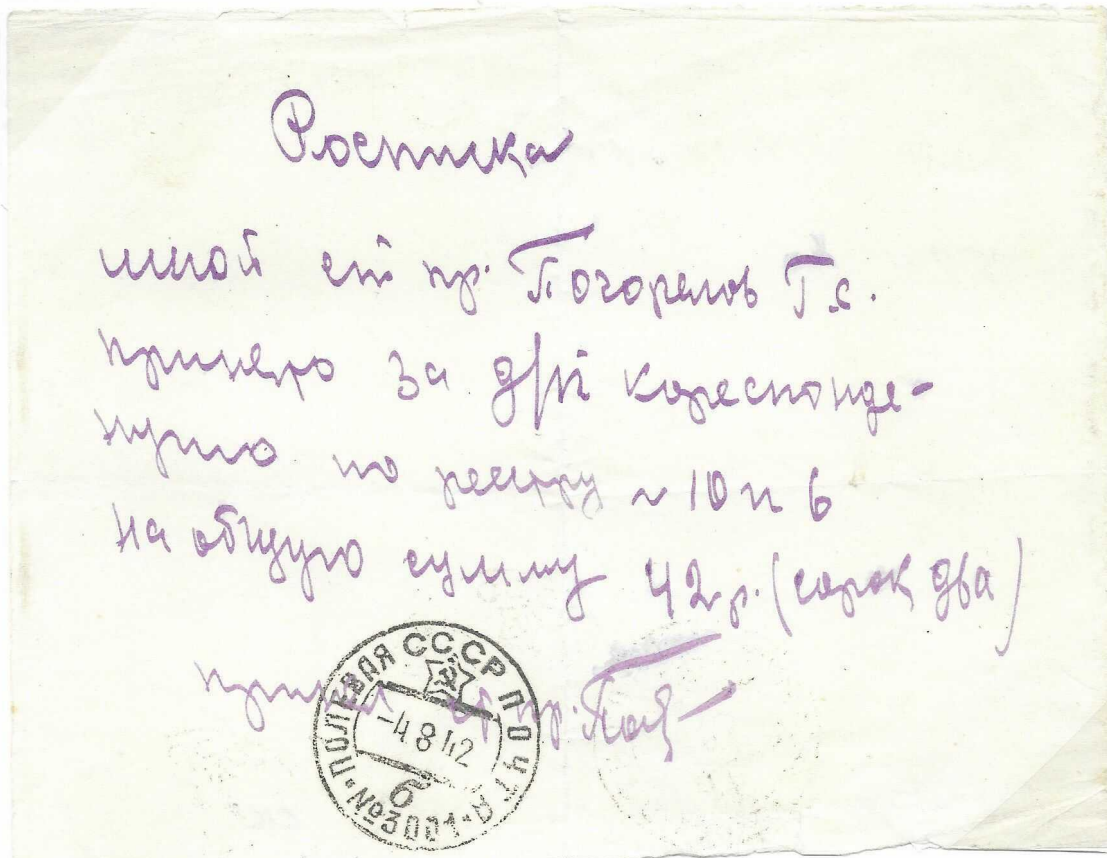 Росписка
мной ст пр. Погорелов Г.с.
принято за д/п кореспонде-
нцию по реестру ~ 10 и 6
на общую сумму 42 р. (сорок два)
принял пр.
СССР ПОЛЕВАЯ ПОЧТА №3001
-4 8 42
б